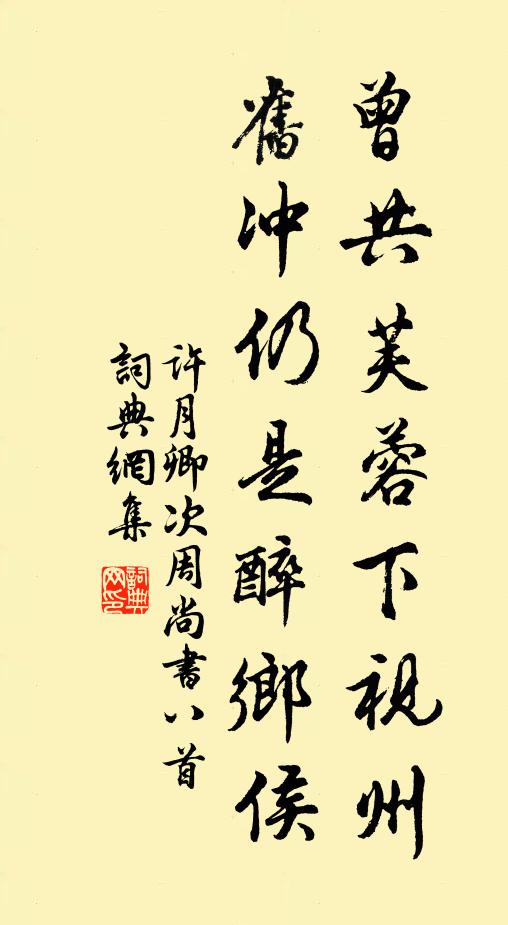 曾共芙蓉下視州
舊沖仍是醉鄉侯
許月卿次周尚書八首
詞典網集
詞典
网印